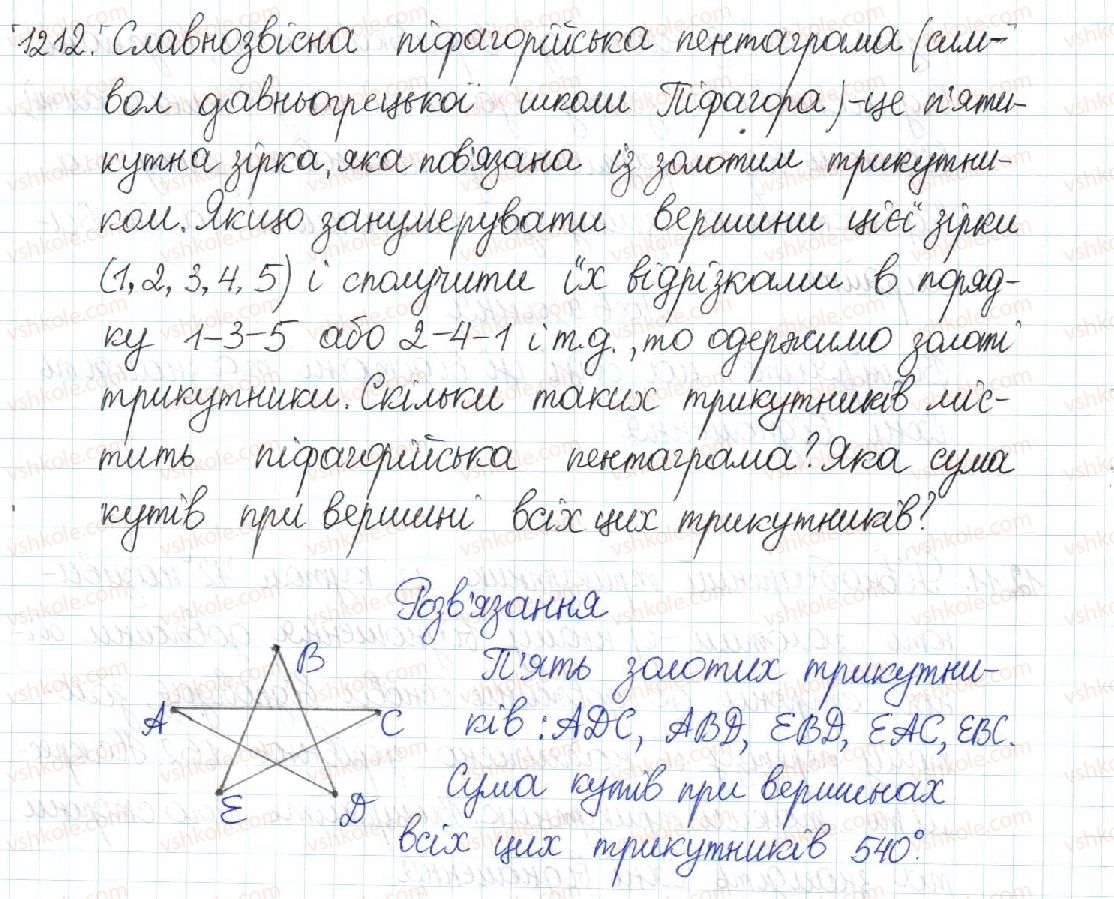 1212. Славнозвісна піфагорійська пентаграма (сим-
вол давньогрецької школи Піфагора) - це п'яти-
кутна зірка, яка пов'язана із золотим трикутни-
ком. Якщо занумерувати вершини цієї зірки
(1, 2, 3, 4, 5) і сполучити їх відрізками в поряд-
ку 1-3-5 або 2-4-1 і т.д., то одержимо золоті
трикутники. Скільки таких трикутників міс-
тить піфагорійська пентаграма? Яка сума
кутів при вершині всіх цих трикутників?
Розв'язання
B
A
C
E
D
П'ять золотих трикутни-
ків: ADC, ABD, EBD, EAC, EBC.
Сума кутів при вершинах
всіх цих трикутників 540°.
vshkole.com